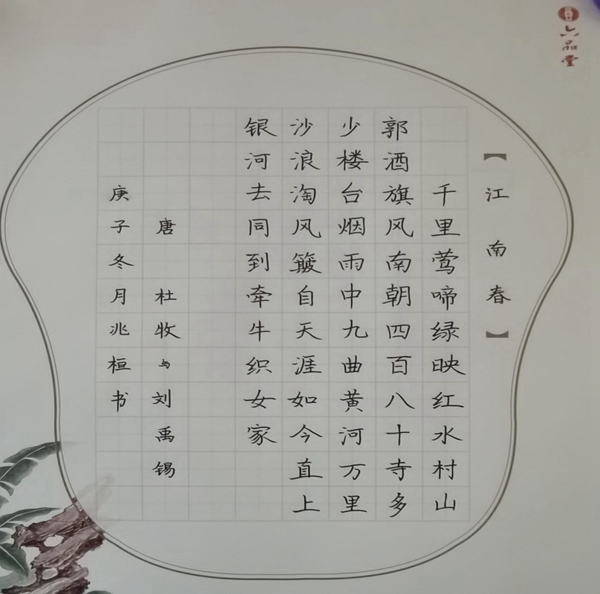 六品堂
【江南春】
千里莺啼绿映红水村山
郭酒旗风南朝四百八十寺多
少楼台烟雨中九曲黄河万里
沙浪淘风簸自天涯如今直上
银河去同到牵牛织女家
唐 杜牧与刘禹锡
庚子冬月兆桓书